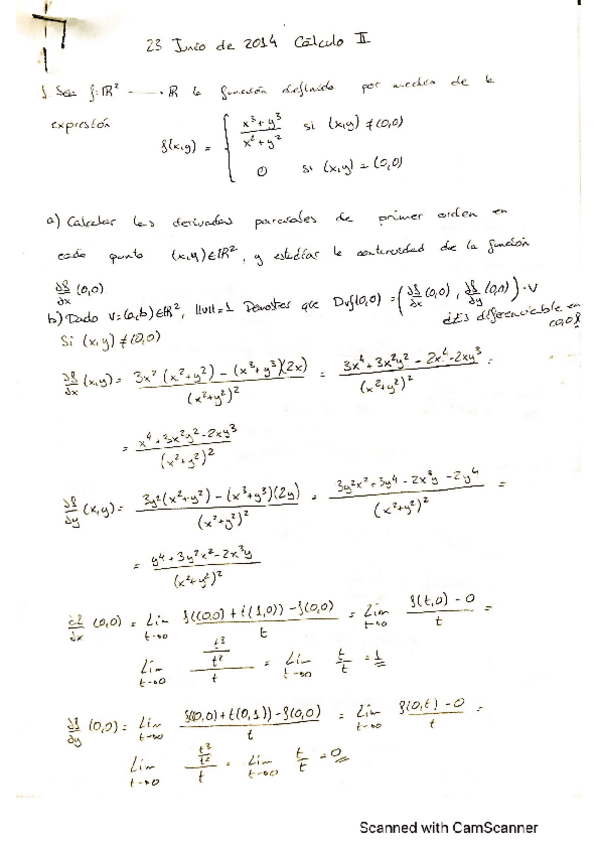 23 Junio de 2014 Cálculo II
1. Sea f: ℝ² ---- ℝ la función definida por medio de la
expresión
f(x,y) = { x³+y³ / x²+y² si (x,y) ≠ (0,0)
0 si (x,y) = (0,0)
a) Calcular las derivadas parciales de primer orden en
cada punto (x,y) ∈ ℝ², y estudiar la continuidad de la función
∂f/∂x (0,0)
b) Dado v=(a,b) ∈ ℝ², ||v||=1 Demostrar que Dvf(0,0) = (∂f/∂x (0,0), ∂f/∂y (0,0)) · v
¿Es diferenciable en (0,0)?
Si (x,y) ≠ (0,0)
∂f/∂x (x,y) = 3x²(x²+y²) - (x³+y³)(2x) / (x²+y²)² = 3x⁴+3x²y² - 2x⁴ - 2xy³ / (x²+y²)² =
= x⁴+3x²y²-2xy³ / (x²+y²)²
∂f/∂y (x,y) = 3y²(x²+y²) - (x³+y³)(2y) / (x²+y²)² = 3y²x²+3y⁴ - 2x³y - 2y⁴ / (x²+y²)² =
= y⁴+3y²x²-2x³y / (x²+y²)²
∂f/∂x (0,0) = Lim t→0 f((0,0)+t(1,0)) - f(0,0) / t = Lim t→0 f(t,0) - 0 / t =
Lim t→0 t³/t² / t = Lim t→0 t/t = 1
∂f/∂y (0,0) = Lim t→0 f(0,0)+t(0,1)) - f(0,0) / t = Lim t→0 f(0,t) - 0 / t =
Lim t→0 t³/t² / t = Lim t→0 t/t = 0
Scanned with CamScanner